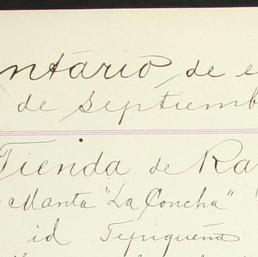 ntario, de e
de Septiemb
Tienda de Ra
Manta "La Concha"
id Tepiqueña